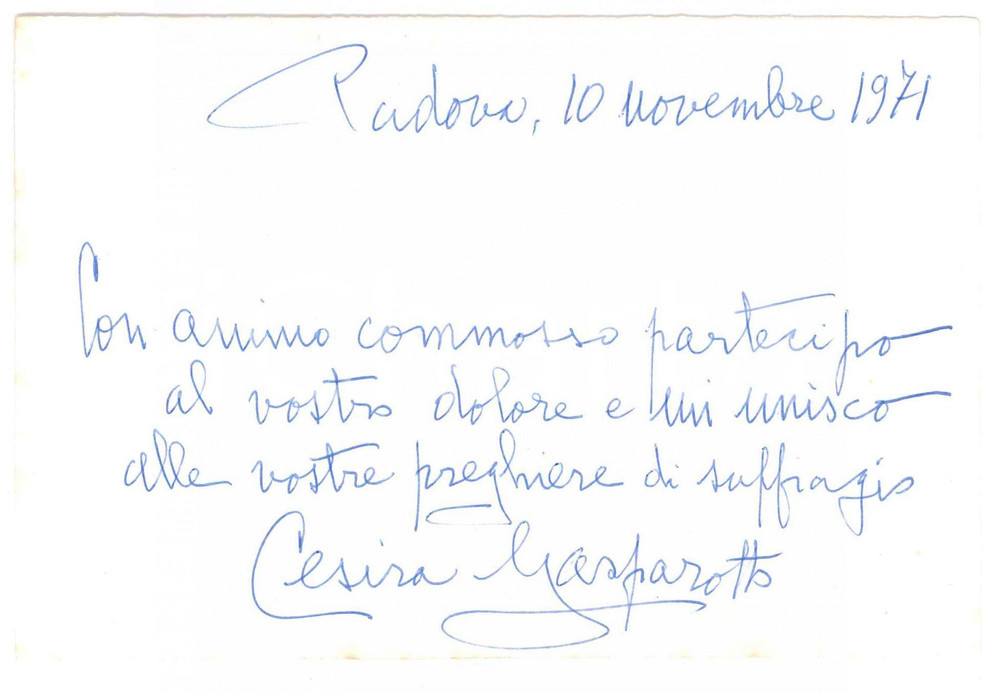 Padova, 10 novembre 1971
Con animo commosso partecipo
al vostro dolore e mi unisco
alle vostre preghiere di suffragio
Cesira Gasparotto